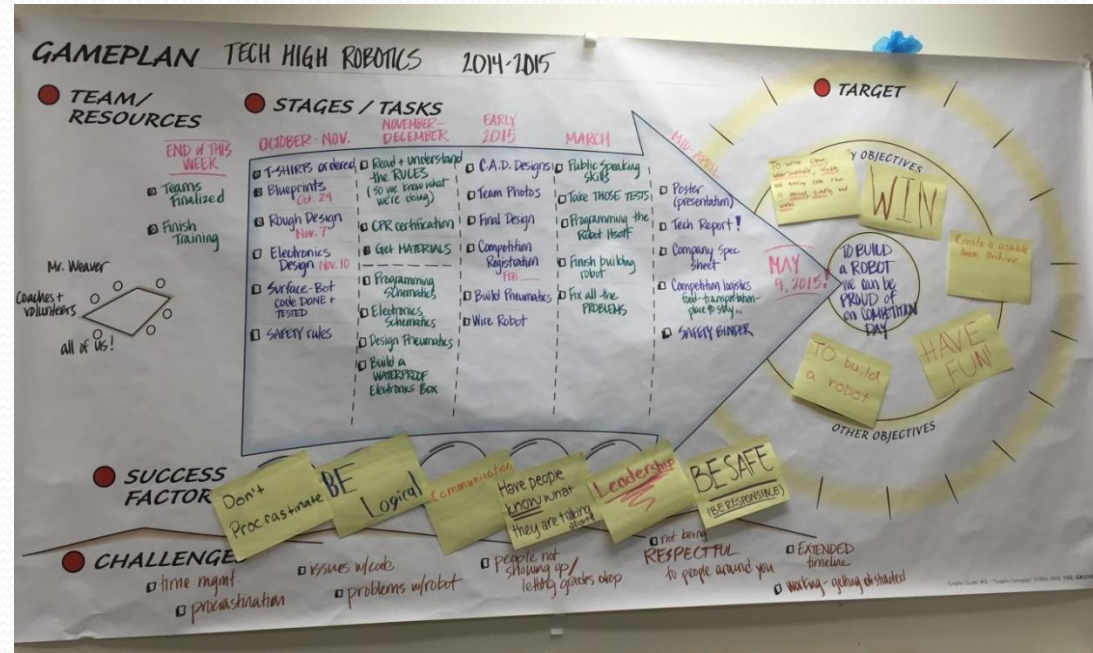 GAMEPLAN TECH HIGH ROBOTICS 2014-2015
TEAM/
RESOURCES
END of THIS
WEEK
Teams
Finalized
Finish
Training
Mr. Weaver
Coaches +
volunteers
all of us!
STAGES / TASKS
OCTOBER-NOV.
T-SHIRTS ordered
Blueprints
Oct. 24
Rough Design
Nov. 7
Electronics
Design Nov. 10
Surface-Bot
code DONE +
TESTED
SAFETY rules
NOVEMBER-
DECEMBER
Read + understand
the RULES
(so we know what
we're doing)
CPR certification
Get MATERIALS
Programming
Schematics
Electronics
Schematics
Design Pneumatics
Build a
WATERPROOF
Electronics Box
EARLY
2015
C.A.D. Designs
Team Photos
Final Design
Competition
Registration
FEB
Build Pneumatics
Wire Robot
MARCH
Public Speaking
Skills
Take THOSE TESTS
Programming the
Robot Itself
Finish building
robot
Fix all the
PROBLEMS
MID-APRIL
Poster
(presentation)
Tech Report!
Company Spec
sheet
Competition logistics
food-transportation-
place to stay...
SAFETY BINDER
MAY
9, 2015!
TARGET
Y OBJECTIVES
To write clean,
and
WIN
Create a usable
team archive
TO BUILD
a ROBOT
we can be
PROUD of
on COMPETITION
DAY
HAVE
FUN!
TO build
a robot
OTHER OBJECTIVES
SUCCESS
FACTOR
Don't
Procrastinate
BE
Logical
Communication
Have people
know what
they are talking
about
Leadership
BE SAFE
(BE RESPONSIBLE)
CHALLENGE
time mgmt.
procrastination
issues w/code
problems w/robot
people not
showing up/
letting grades drop
not being
RESPECTFUL
to people around you
EXTENDED
timeline
working - getting distracted